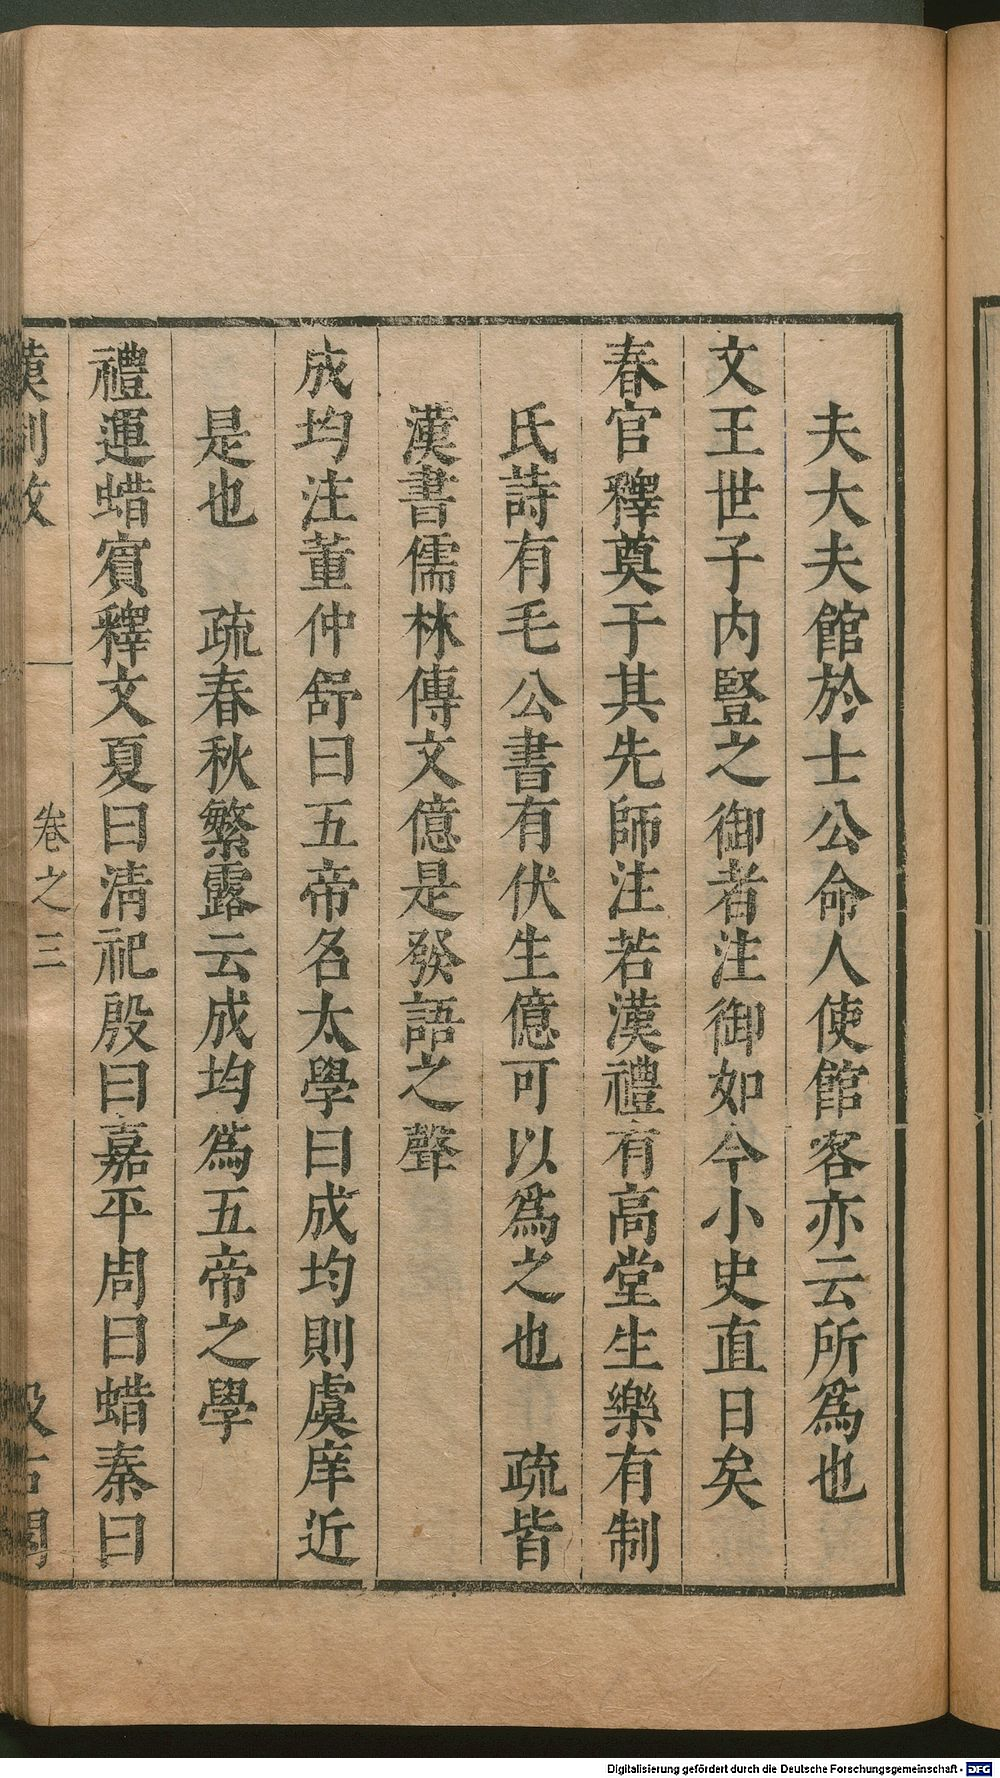 夫大夫館於士公命人使館客亦云所爲也
文王世子内豎之御者注御如今小史直日矣
春官釋奠于其先師注若漢禮有高堂生樂有制
氏詩有毛公書有伏生億可以爲之也　疏皆
漢書儒林傳文億是發語之聲
成均注董仲舒曰五帝名太學曰成均則虞庠近
是也　疏春秋繁露云成均爲五帝之學
禮運蜡賓釋文夏曰清祀殷曰嘉平周曰蜡秦曰
漢制攷　卷之三　汲古閣
Digitalisierung gefördert durch die Deutsche Forschungsgemeinschaft - DFG